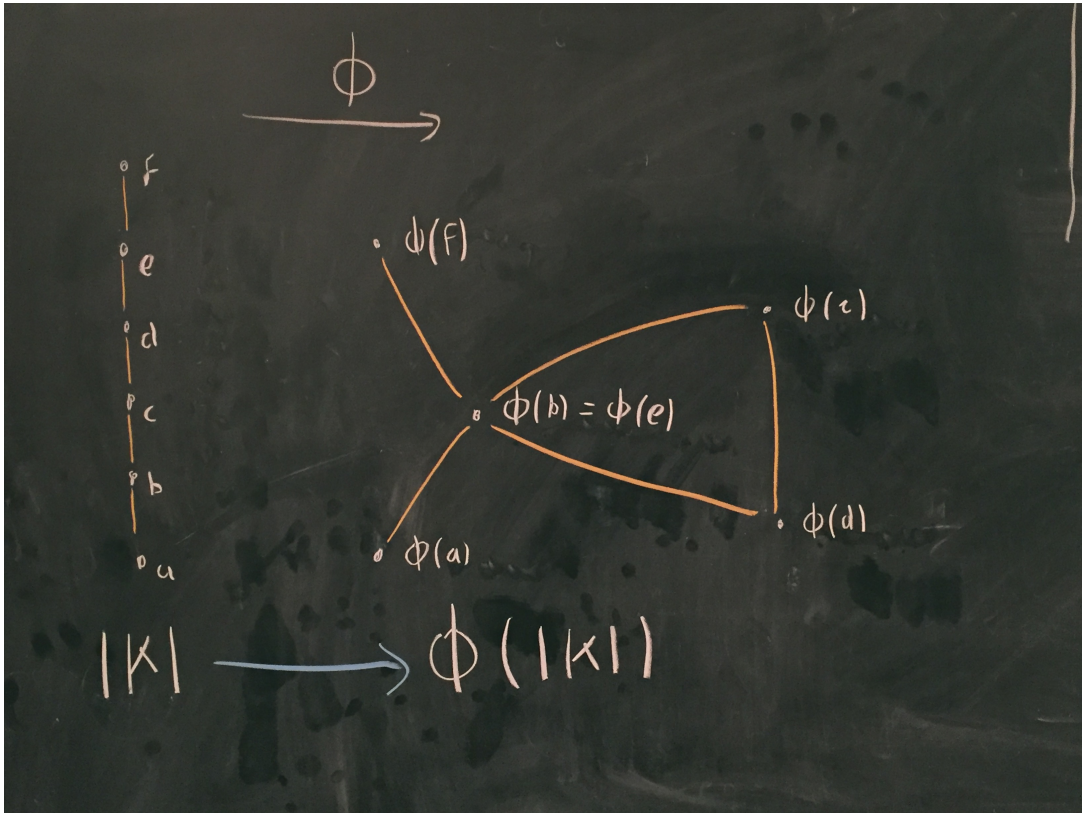 ϕ
f
e
d
c
b
a
ϕ(f)
ϕ(c)
ϕ(b) = ϕ(e)
ϕ(d)
ϕ(a)
|K| → ϕ(|K|)